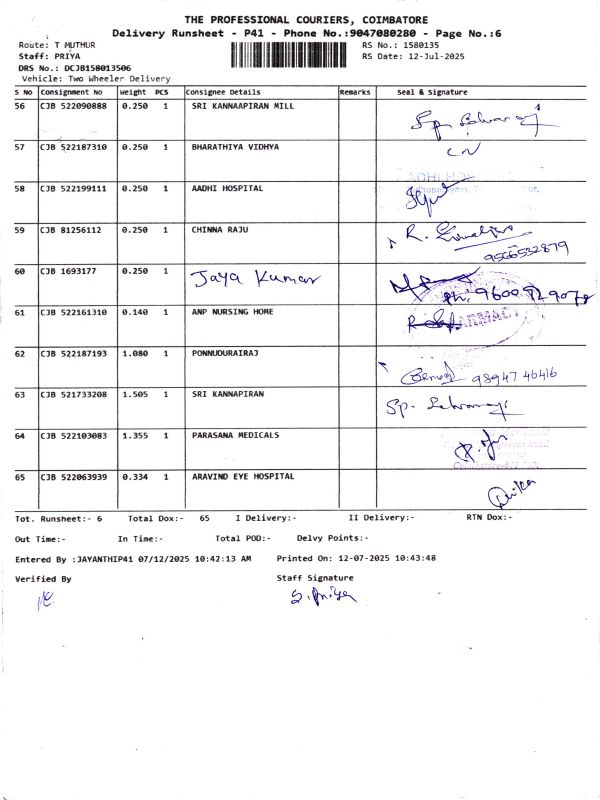 THE PROFESSIONAL COURIERS, COIMBATORE
Delivery Runsheet - P41 - Phone No.:9047080280 - Page No.:6
Route: T MUTHUR RS No.: 1580135
Staff: PRIYA RS Date: 12-Jul-2025
DRS No.: DCJB158013506
Vehicle: Two Wheeler Delivery
S NO Consignment No Weight PCS Consignee Details Remarks Seal & Signature
56 CJB 522090888 0.250 1 SRI KANNAAPIRAN MILL
57 CJB 522187310 0.250 1 BHARATHIYA VIDHYA
58 CJB 522199111 0.250 1 AADHI HOSPITAL
59 CJB 81256112 0.250 1 CHINNA RAJU
9566532879
60 CJB 1693177 0.250 1 Jaya Kumar
61 CJB 522161310 0.140 1 ANP NURSING HOME
62 CJB 522187193 1.080 1 PONNUDURAIRAJ
98947 46416
63 CJB 521733208 1.505 1 SRI KANNAPIRAN
64 CJB 522103083 1.355 1 PARASANA MEDICALS
65 CJB 522063939 0.334 1 ARAVIND EYE HOSPITAL
Tot. Runsheet:- 6 Total Dox:- 65 I Delivery:- II Delivery:- RTN Dox:-
Out Time:- In Time:- Total POD:- Delvy Points:-
Entered By :JAYANTHIP41 07/12/2025 10:42:13 AM Printed On: 12-07-2025 10:43:48
Verified By Staff Signature
S. Priya